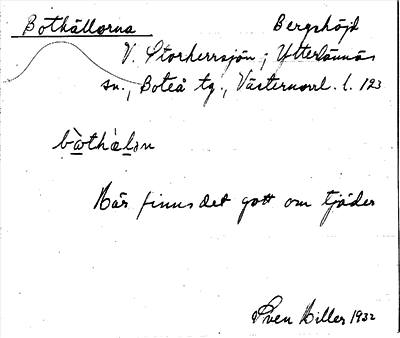 Bothällorna Bergshöjd
V. Storherrsjön; Ytterlännäs
sn., Boteå tg., Västernorrl. l. 123
Här finns det gott om tjäder
Sven Hiller 1932